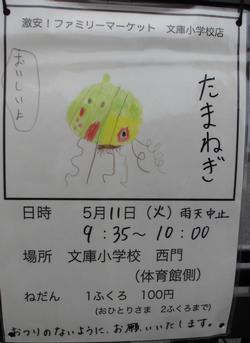 激安！ファミリーマーケット　文庫小学校店
おいしいよ
たまねぎ
日時　5月11日（火）雨天中止
9：35～10：00
場所　文庫小学校　西門
（体育館側）
ねだん　1フクロ　100円
（おひとりさま　2フクロまで）
おつりのないように、お願いいたします。